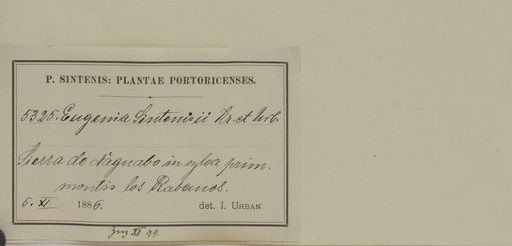 P. SINTENIS: PLANTAE PORTORICENSES.
5325. Eugenia Sintenisii Kr. et Urb.
Sierra de Naguabo in sylva prim.
montis los Rabanos.
6. XI 1886. det. I. URBAN.
XI 99.